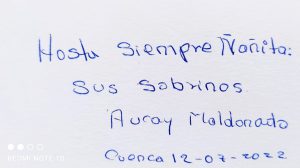 Hasta siempre Ñañita:
Sus Sobrinos
Auray Maldonado
Cuenca 12-07-2022
REDMI NOTE 10